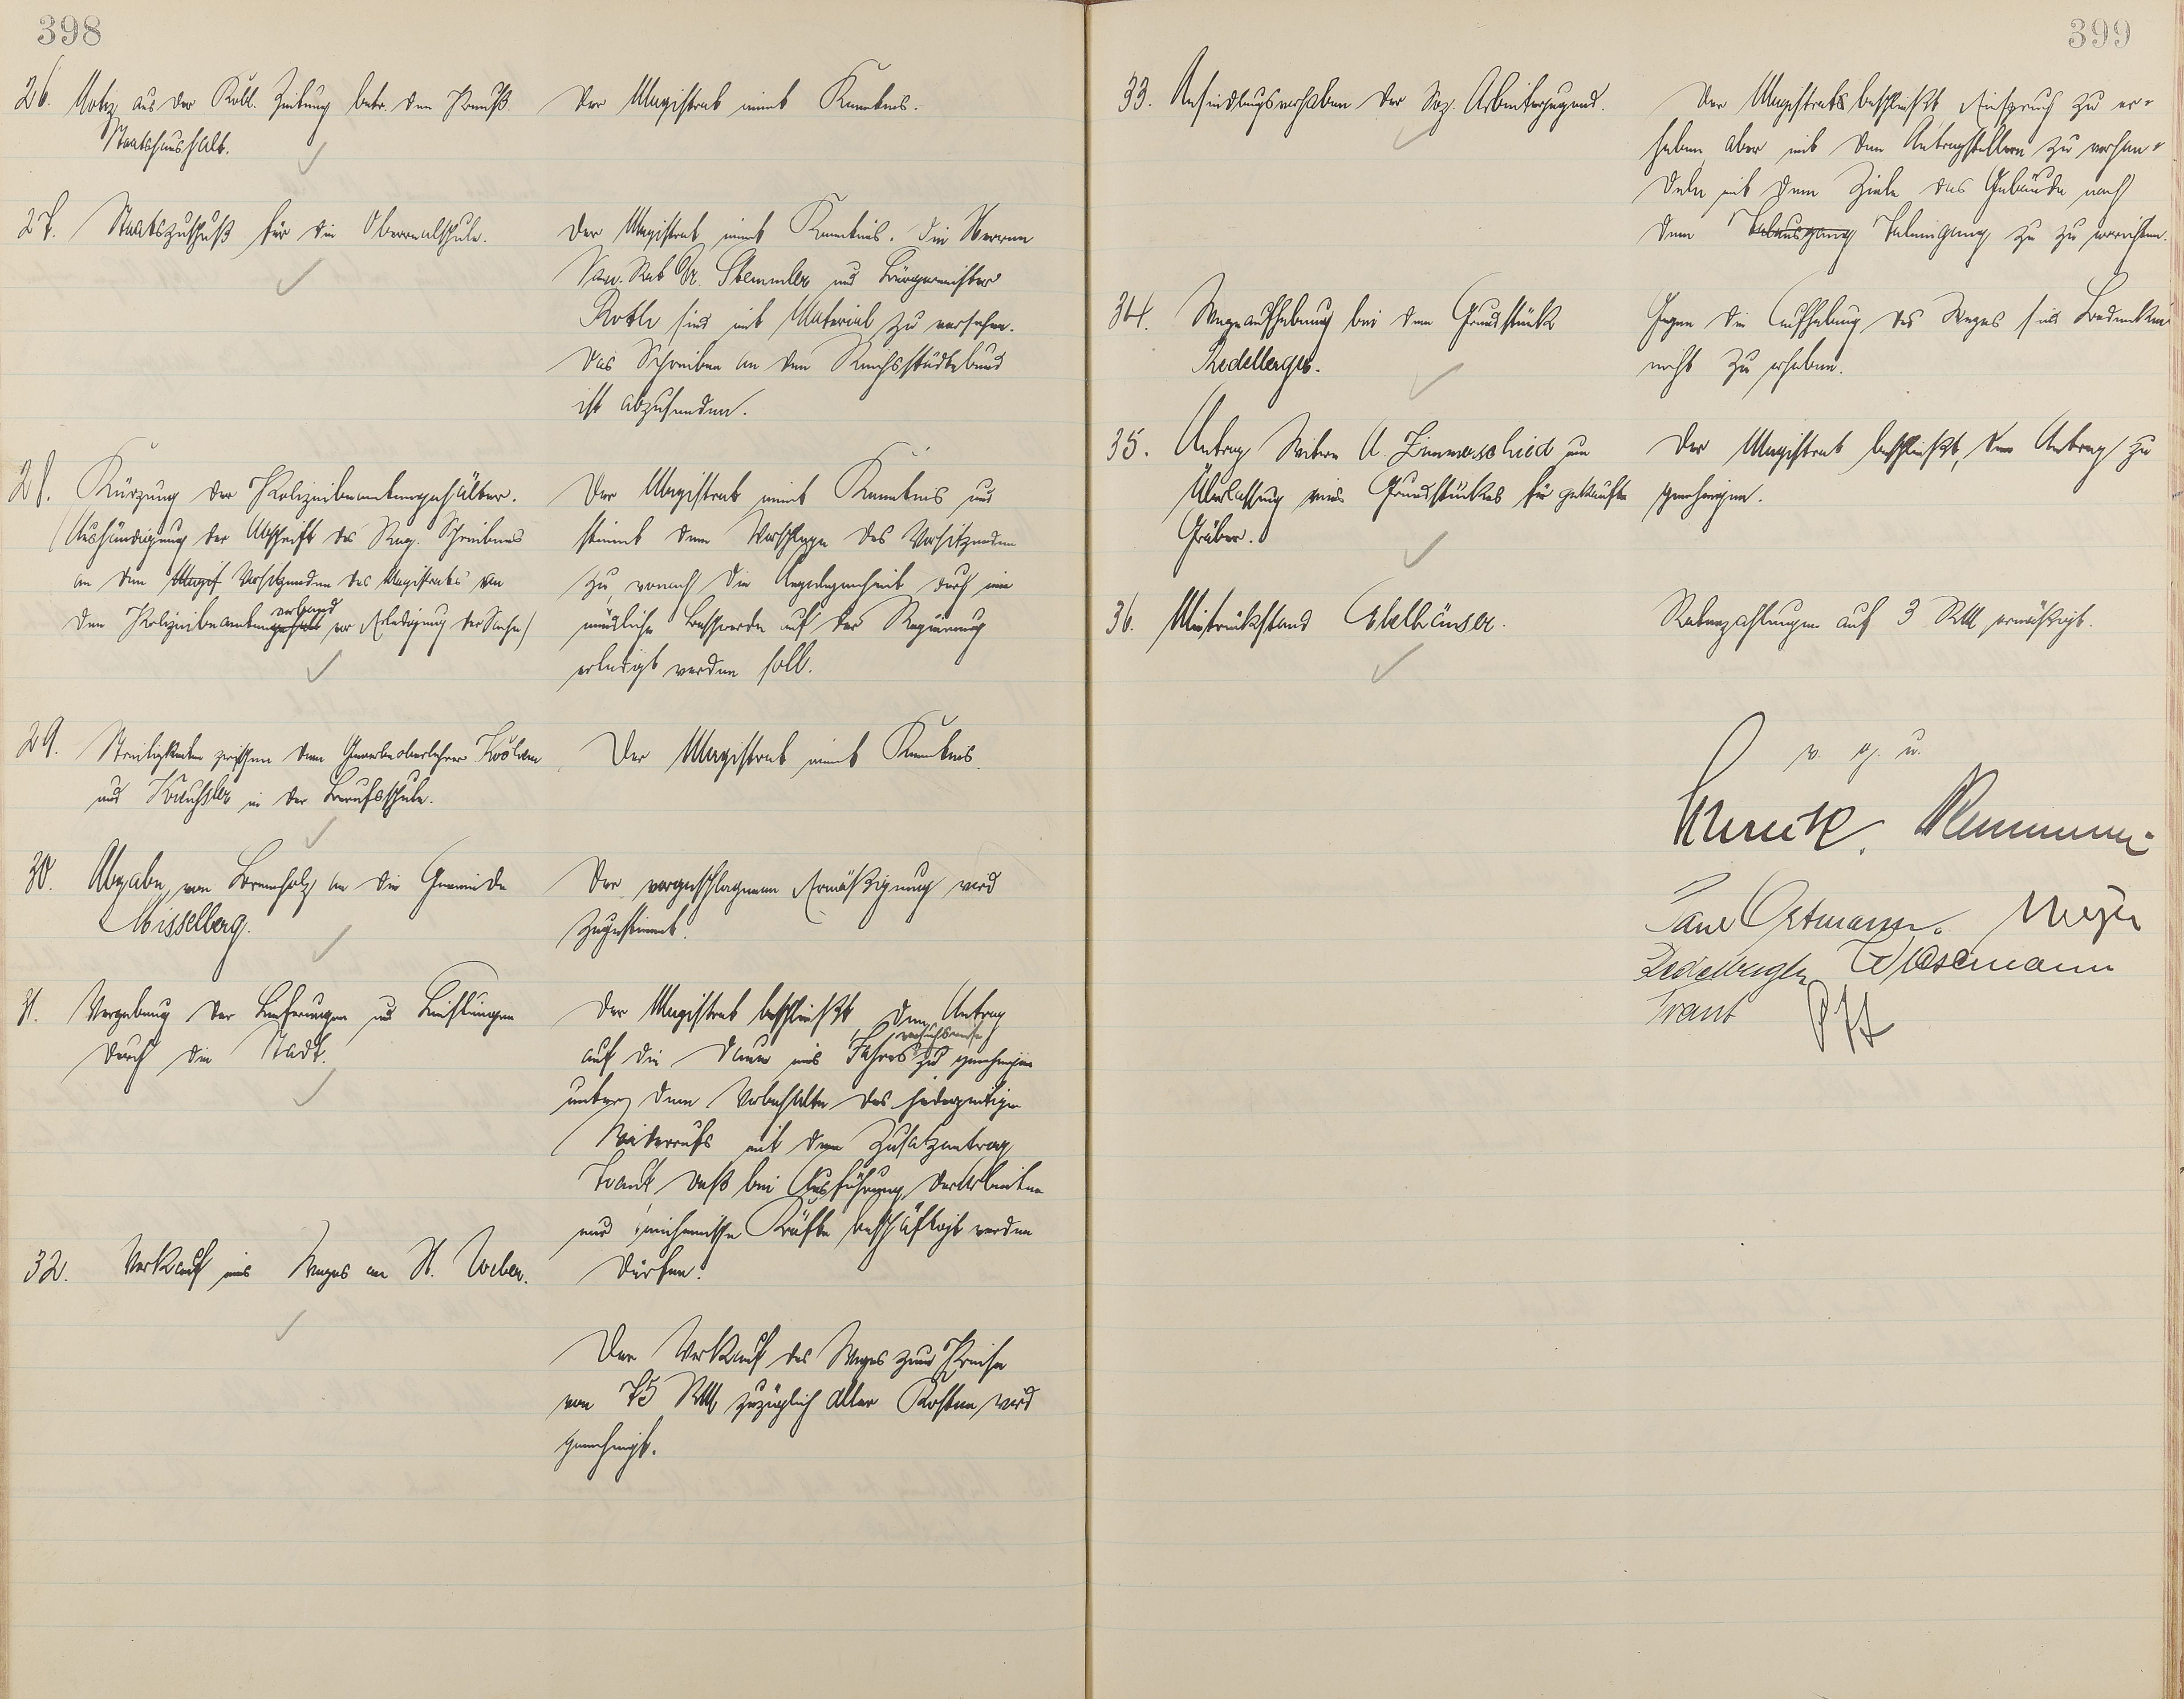 398
26. Notiz aus der Kobl. Zeitung betr. den Preuß.
Staatshaushalt.
Der Magistrat nimt Kenntnis.
27. Staatszuschuß für die Oberrealschule.
Der Magistrat nimt Kenntnis. Die Herren
San. Rat Dr. Stemmler und Bürgermeister
Roth sind mit Material zu versehen.
Das Schreiben an den Reichsstädtebund
ist abzusenden.
28. Kürzung der Polizeibeamtengehälter.
(Aushändigung der Abschrift des Reg. Schreibens
an den Magist Vorsitzenden des Magistrats von
den Polizeibeamtengehalt verband vor Erledigung der Sache)
Der Magistrat nimt Kenntnis und
stimmt dem Vorschlage des Vorsitzenden
zu wonach die Angelegenheit durch eine
mündliche Beschwerde auf der Regierung
erledigt werden soll.
29. Streitigkeiten zwischen dem Gewerbeoberlehrer
und in der Berufsschule.
Der Magistrat nimt Kenntnis.
30. Abgabe von Brennholz an die Gemeinde
Misselberg.
Der vorgeschlagenen Ermäßigung wird
zugestimmt.
31. Vergebung der Lieferungen und Leistungen
durch die Stadt.
Der Magistrat beschließt den Antrag
auf die Dauer eines Jahres versuchsweise zu genehmigen
unter dem Vorbehalte des jederzeitigen
Widerrufs mit dem Zusatzantrag
Traut, daß bei Ausführung der Arbeiten
nur einheimische Kräfte beschäftigt werden
dürfen.
32. Verkauf eines Weges an H. Weber.
Der Verkauf des Weges zum Preise
von 75 RM zuzüglich aller Kosten wird
genehmigt.
399
33. Ansiedlungsvorhaben der Soz. Arbeiterjugend.
Der Magistrats beschließt, Einspruch zu er-
heben aber mit den Antragstellern zu verhan-
deln mit dem Ziele das Gebäude nach
dem Talausgang Taleingang zu zu errichten.
34. Wegeaufhebung bei dem Grundstück
Redelberger.
Gegen die Aufhebung des Weges sind Bedenken
nicht zu erheben.
35. Antrag Witwe A. Zimmerschied um
Überlassung eines Grundstückes für gekaufte
Gräber.
Der Magistrat beschließt, den Antrag zu
genehmigen.
36. Mietrückstand Ebelhäuser.
Ratenzahlungen auf 3 RM ermäßigt.
v. g. u.
Paul Ortmann. Meyer
Redelberger Wasemann
Traut